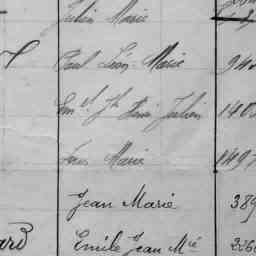 Julien Marie
Paul Léon Marie 94
Em. Jh Julien 140
Marie 1497
Jean Marie 389
ard Emile Jean Mie 226